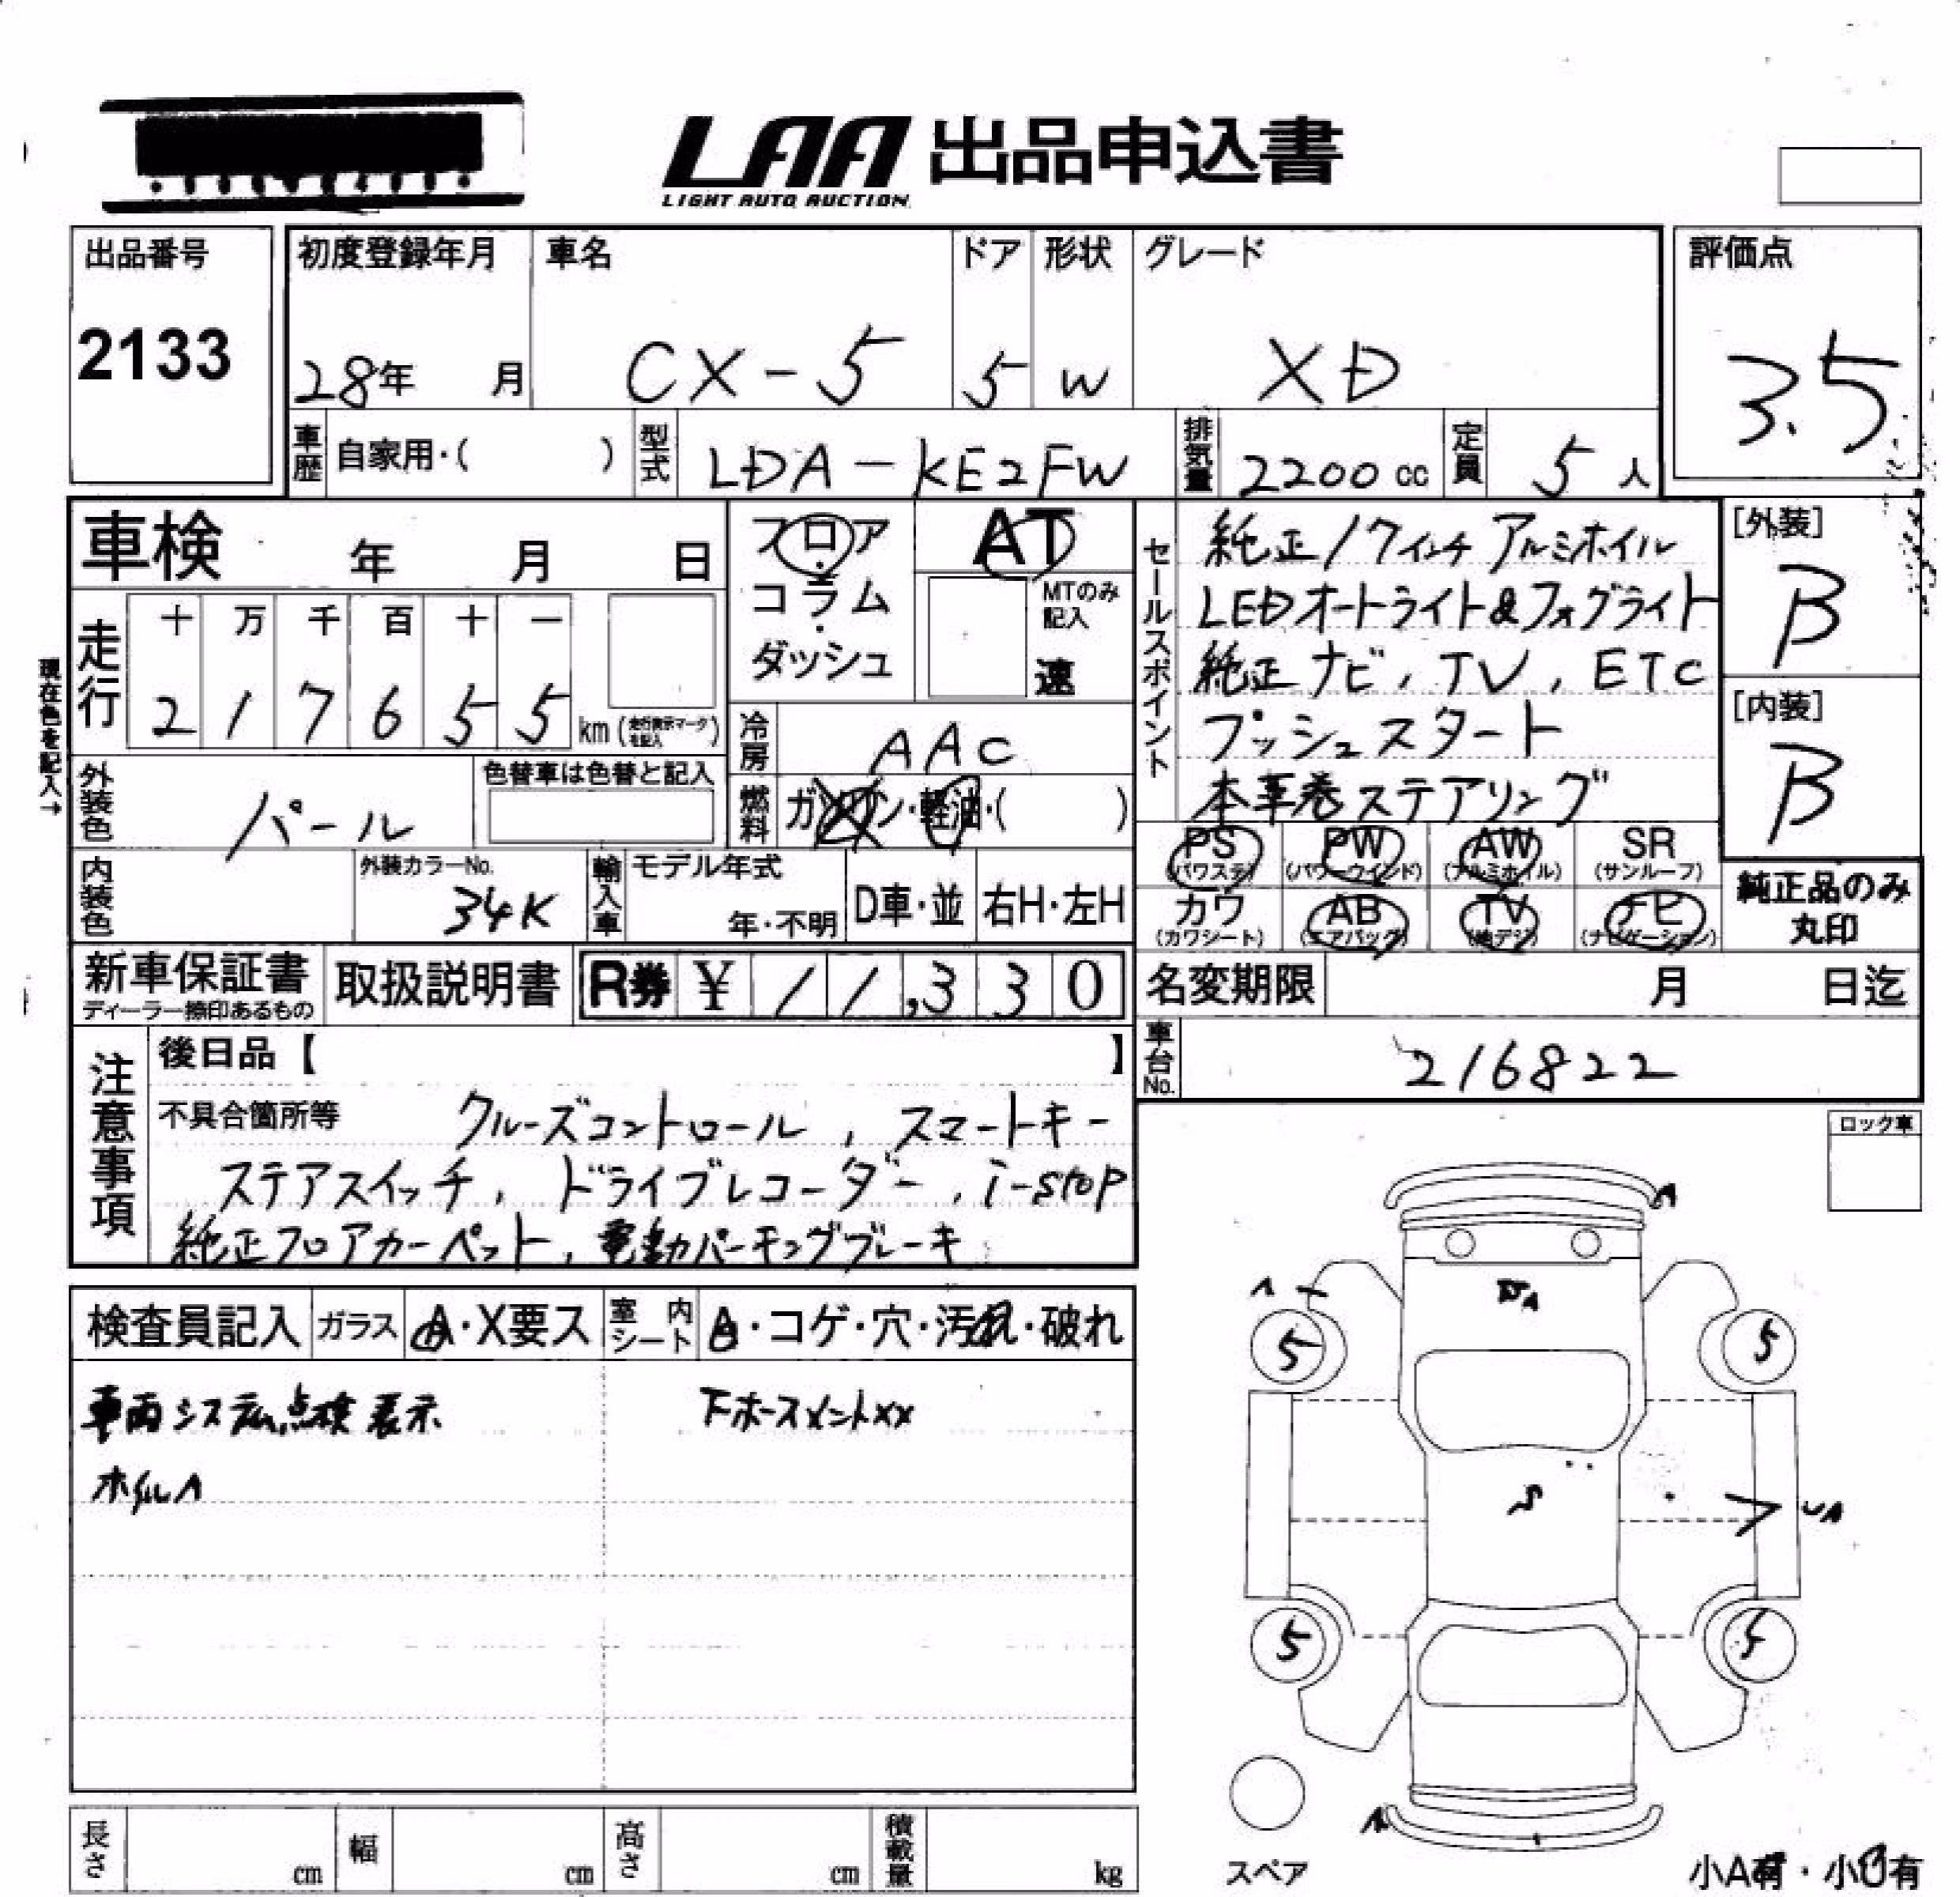 LAA 出品申込書
LIGHT AUTO AUCTION
出品番号 初度登録年月 車名 ドア 形状 グレード 評価点
2133 28年 月 CX-5 5 W XD 3.5
車歴 自家用・( ) 型式 LDA-KE2FW 排気量 2200cc 定員 5人
車検 年 月 日
フロア・コラム・ダッシュ
AT
MTのみ記入
速
走行 十 万 千 百 十 一
2 1 7 6 5 5 km (走行表示マークを記入)
現在色を記入→
冷房 AAC
外装色 パール
色替車は色替と記入
燃料 ガソリン・軽油・( )
内装色
外装カラーNo.
34K
輸入車 モデル年式
年・不明
D車・並 右H・左H
セールスポイント
純正17インチアルミホイル
LEDオートライト&フォグライト
純正ナビ, TV, ETC
プッシュスタート
本革巻ステアリング
[外装]
B
[内装]
B
PS PW AW SR
(パワステ) (パワーウインド) (アルミホイル) (サンルーフ)
カワ AB TV ナビ
(カワシート) (エアバッグ) (地デジ) (ナビゲーション)
純正品のみ
丸印
新車保証書
ディーラー捺印あるもの
取扱説明書
R券 ¥ 11,330
名変期限 月 日迄
車台No. 216822
注意事項
後日品【 】
不具合箇所等 クルーズコントロール, スマートキー
ステアスイッチ, ドライブレコーダー, i-stop
純正フロアカーペット, 電動パーキングブレーキ
ロック車
検査員記入 ガラス A・X要ス 室内シート A・コゲ・穴・汚れ・破れ
車両システム点検表示 下ホースメントXX
ホイルA
A
A
A
5 5
S
UA
5 5
A
スペア
長さ cm 幅 cm 高さ cm 積載量 kg
小A有・小U有